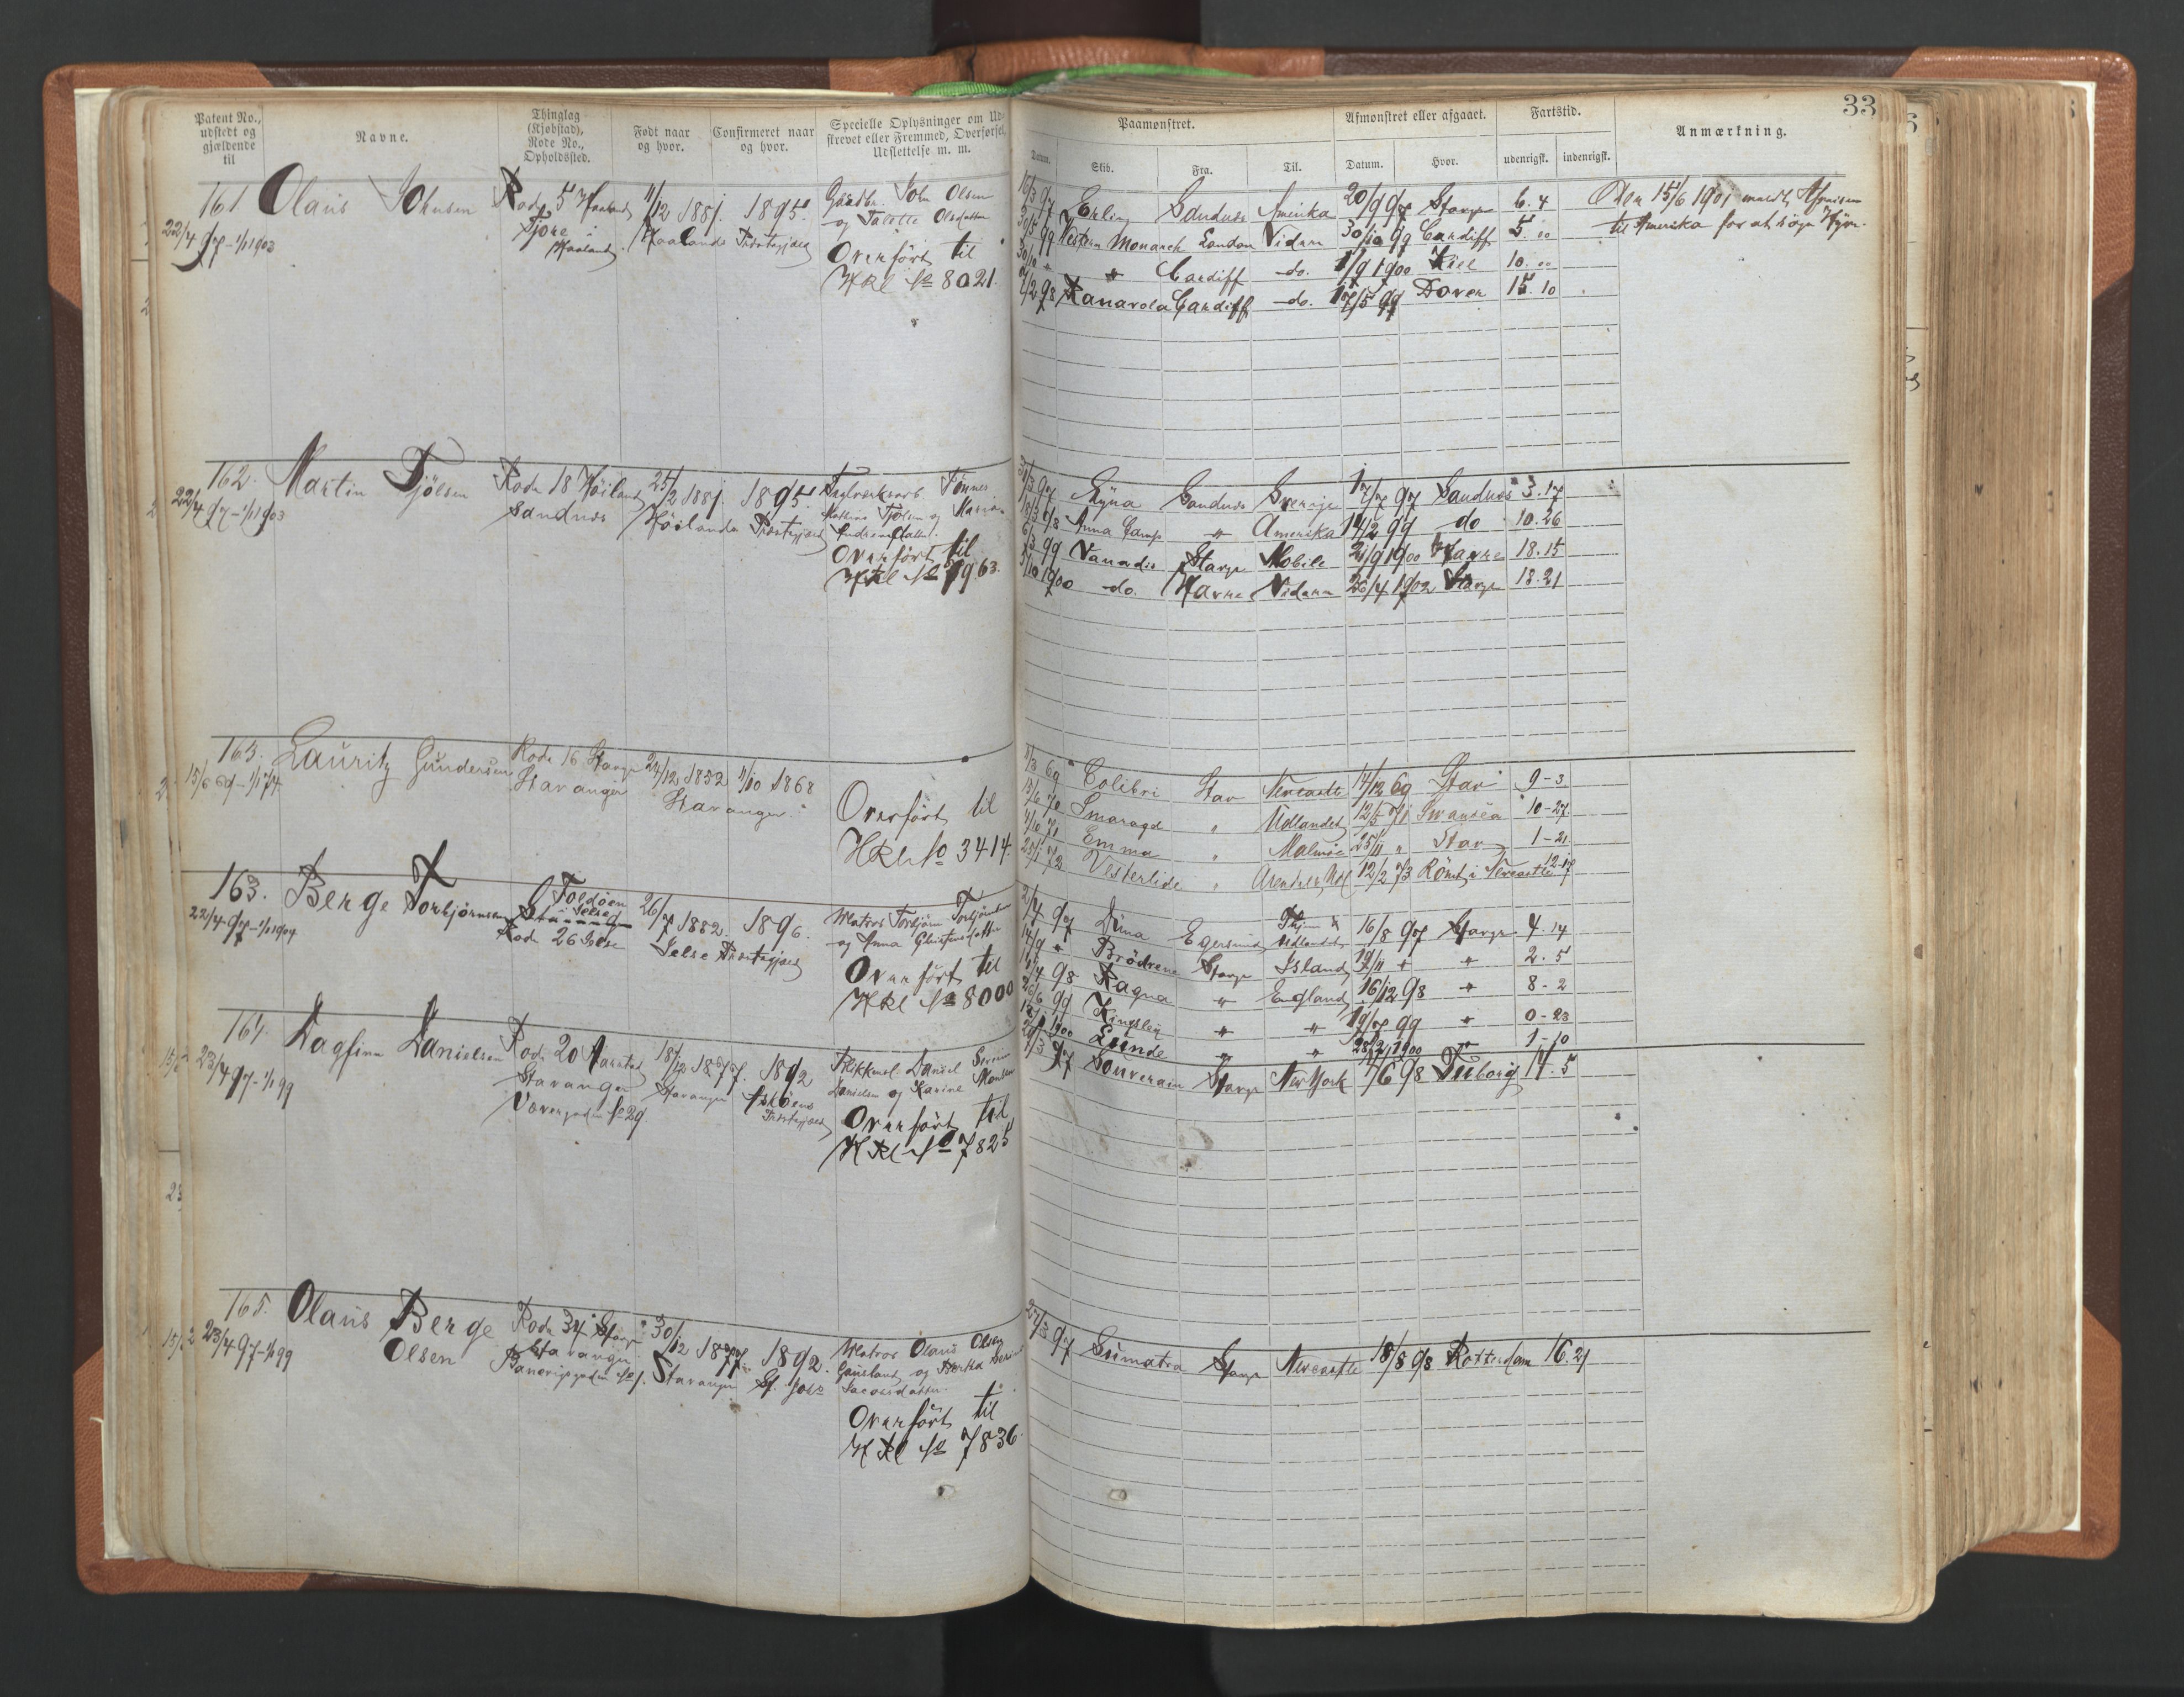 33
Patent No., udstedt og gjældende til
Navne.
Thinglag (Kjøbstad), Rode No., Opholdssted.
Født naar og hvor.
Confirmeret naar og hvor.
Specielle Oplysninger om Udskrevet eller Fremmed, Overførsel, Udslettelse m. m.
Paamønstret.
Afmønstret eller afgaaet.
Fartstid.
Anmærkning.
Datum.
Skib.
Fra.
Til.
Datum.
Hvor.
udenrigsk.
indenrigsk.
161 Olaüs Johnsen Rode 5 Haaland 11/12 1881. 1895. Gaardbr. John Olsen
22/4 97 - 1/1 1903 Tjore i Haaland Haalands Præstegjæld og Olsdatter
Overført til
HRl No 8021.
16/3 97 Erling Sandnes Amerika 20/9 97 Stavgr 6. 4 Den 15/6 1901 meldt Afreisen
30/5 99 Western Monarch London Vidre 30/10 99 Cardiff 5. 00 til Amerika for at søge Hyre.
30/10 " " Cardiff do. 1/9 1900 Kiel 10. 00
7/2 98 Ranavola Cardiff do. 17/5 99 Dover 15. 10
162. Martin Tjölsen Rode 18 Höiland 25/2 1881. 1895. Teglverksarb. Tönnes
22/4 97 - 1/1 1903 Sandnes Höilands Præstegjæld Mathias Tjölsen og
Overført til
HRl No 7963.
31/3 97 Ægna Sandnes Sverige 17/7 97 Sandnes 3. 17
18/3 98 Anna Camp " Amerika 14/2 99 do 10. 26
6/3 99 Vanadis Stavgr Mobile 21/9 1900 Havre 18. 15
5/10 1900 do. Havre Videre 26/4 1902 Stavgr 18. 21
163. Lauritz Gundersen Rode 16 Stavgr 24/12 1852 1/10 1868
15/6 69 - 1/1 74 Stavanger Stavanger.
Overført til
HRl No 3414.
1/3 69 Colibri Stav Newcastle 14/12 69 Stav 9 - 3
15/6 70 Smaragd " Udlandet 12/5 71 Swansea 10 - 27.
4/10 71 Emma " Malmöe 25/11 " Stav 1 - 21
25/1 72 Vesterlide " Arendal, Udl 12/2 73 Rømt i Newcastle 12-17
163. Berge Torbjørnsen Foldøen i Jelse 26/7 1882. 1896. Matros Torbjörn Torbjörnsen
22/4 97 - 1/1 1904 Rode 26 Jelse Jelse Præstegjæld og Anna Christensdatter
Overført til
HRl No 8000
2/4 97 Düna Egersund Udlandet 16/8 97 Stavgr 4. 14
14/9 " Brödrene Stavgr Island 19/11 " " 2. 5
14/4 98 Ragna " England 16/12 98 " 8 - 2
26/6 99 Kingsley " " 19/7 99 " 0 - 23
1900 Lünde " " 28/2 1900 " 1 - 10
164. Dagfinn Danielsen Rode 20 18/12 1877. 1892 Blikkensl. Daniel
23/4 97 - 1/1 99 Stavanger Stavanger Præstegjæld Danielsen og Karine
No 29.
Overført til
HRl No 7825
97 Souverain Stavgr New York 1/6 98 Tuborg 14. 5
165. Olaüs Berge Olsen Rode 34 Stavgr 30/12 1877. 1892. Matros Olaüs Olsen
23/4 97 - 1/1 99 Stavanger No 1. Stavanger og
Jacobsdatter.
Overført til
HRl No 7836.
27/3 97 Sumatra Stavgr Newcastle 18/8 98 Rotterdam 16. 21